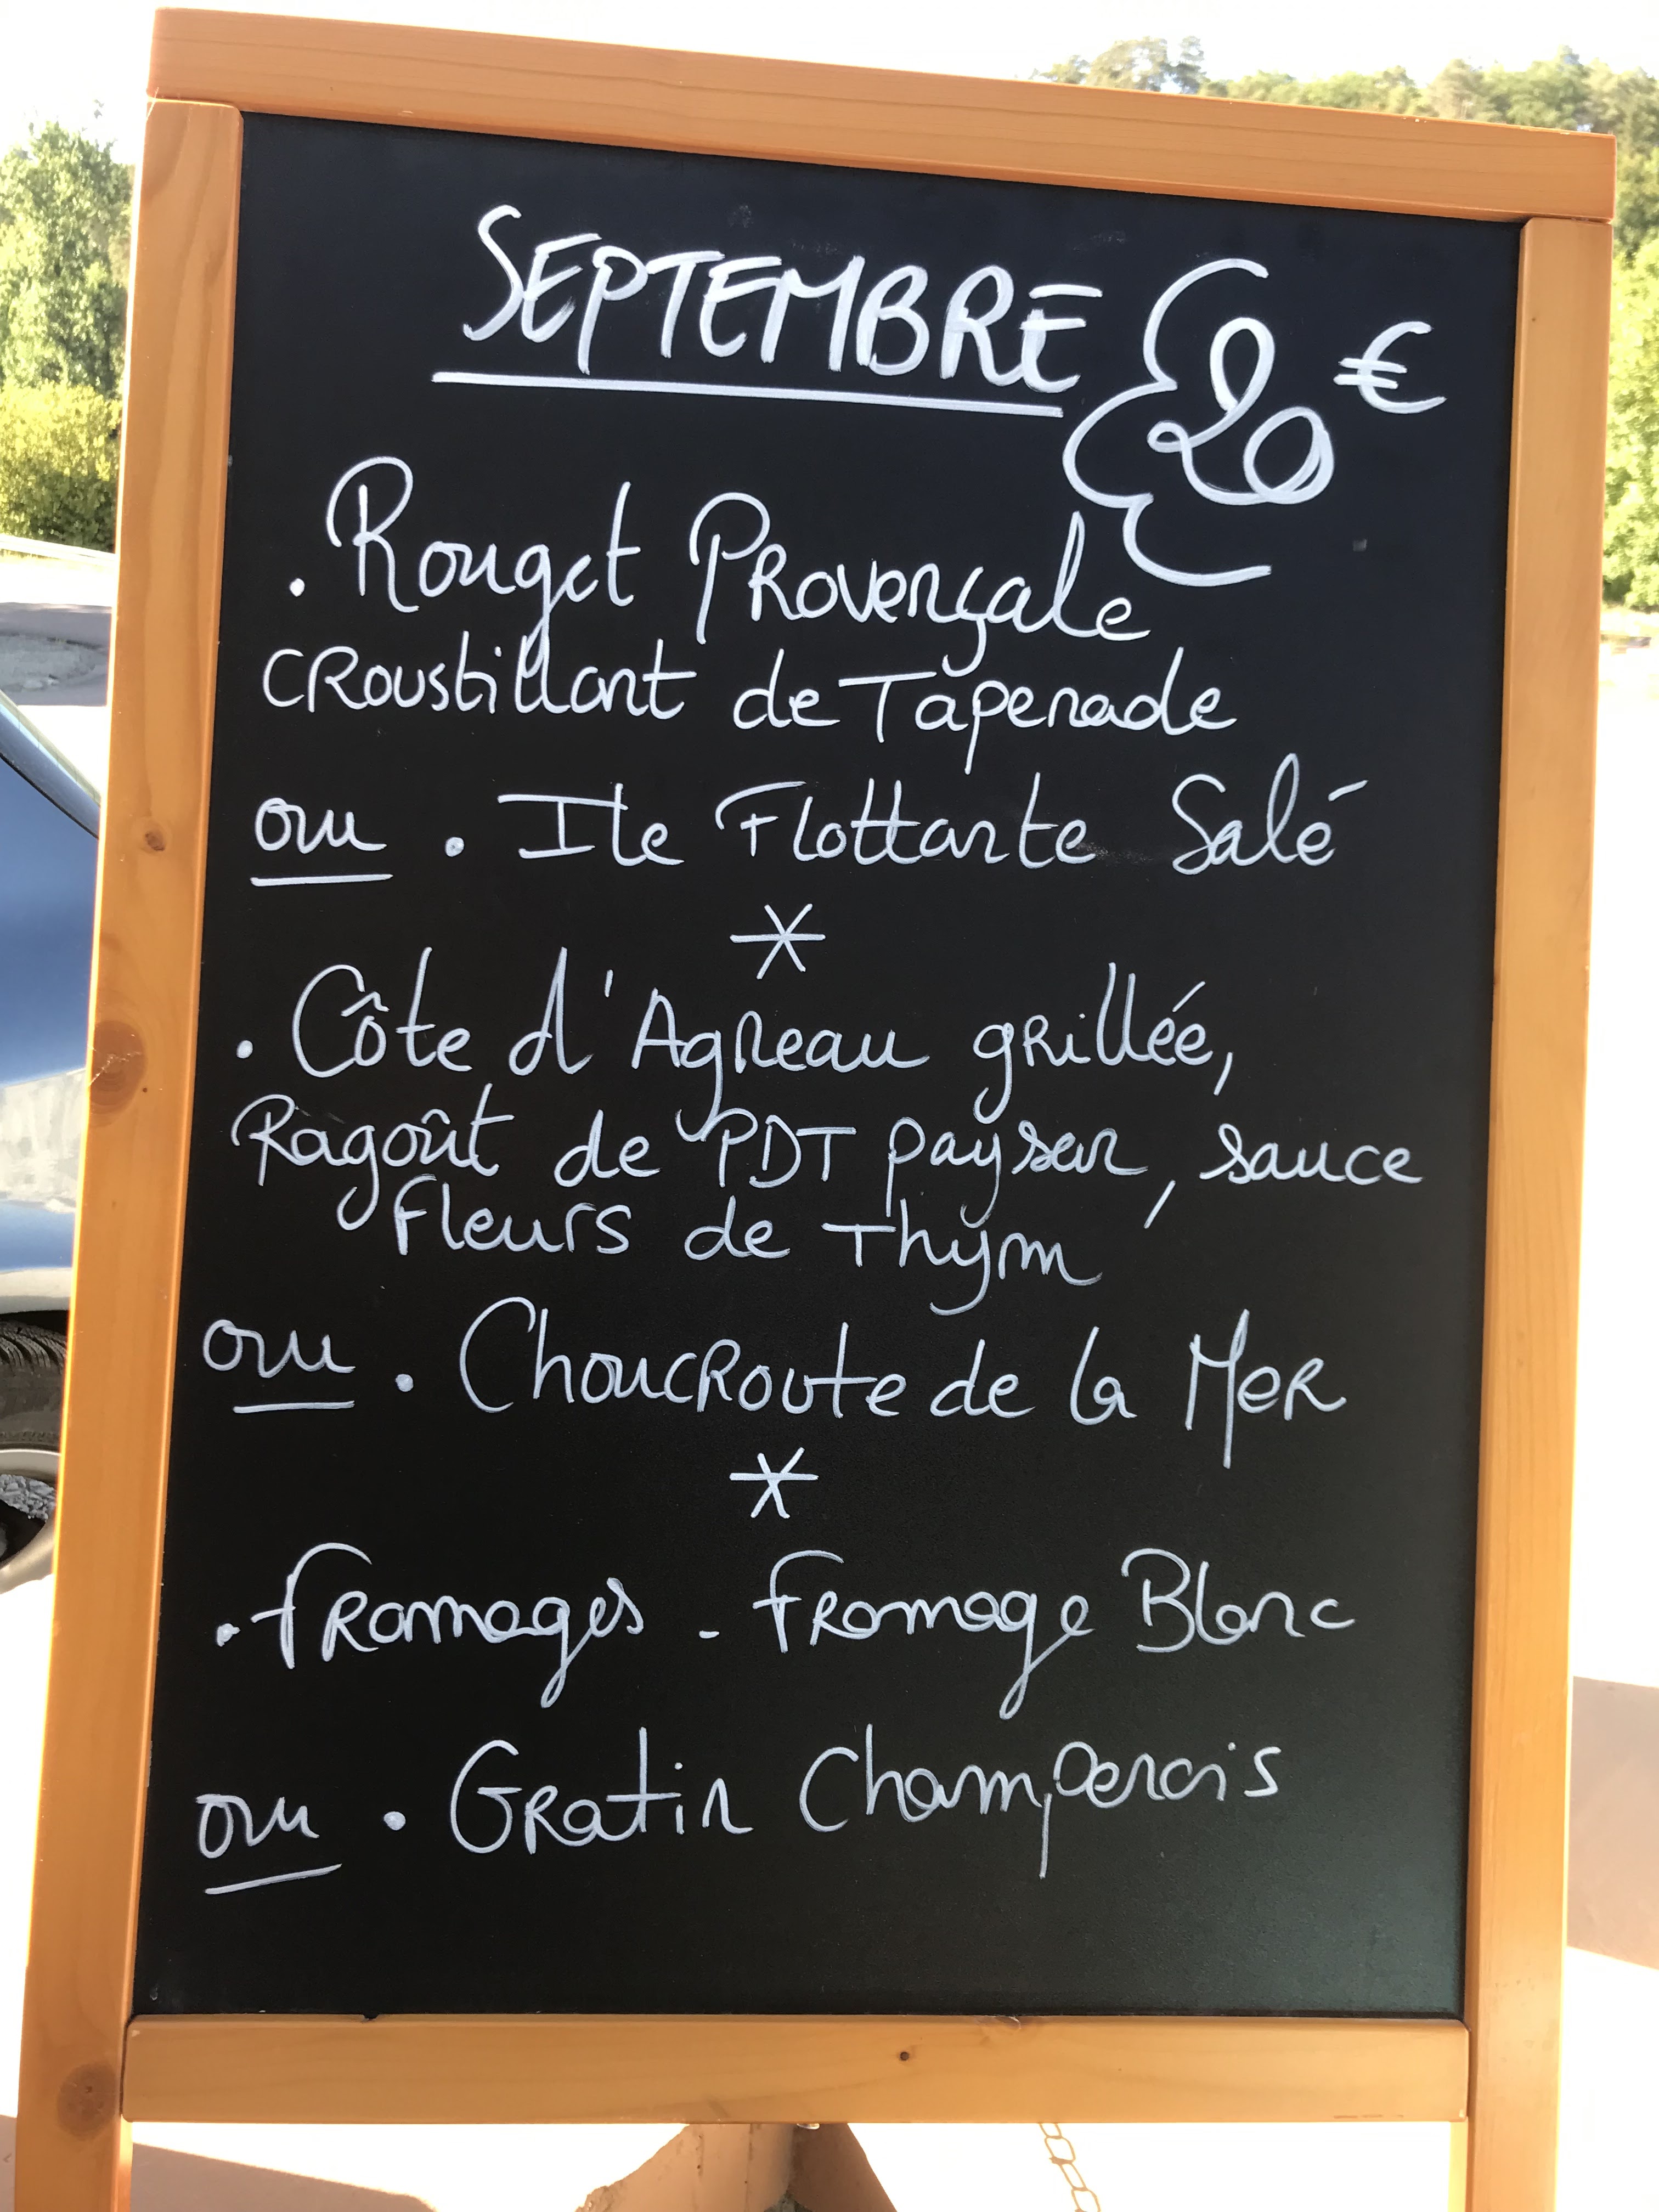 SEPTEMBRE 20 €
. Rouget Provençale
croustillant de Tapenade
ou . Ile Flottante Salé
*
. Côte d'Agneau grillée,
Ragoût de PDT paysan, sauce
fleurs de Thym
ou . Choucroute de la Mer
*
. fromages - fromage Blanc
ou . Gratin Champenois